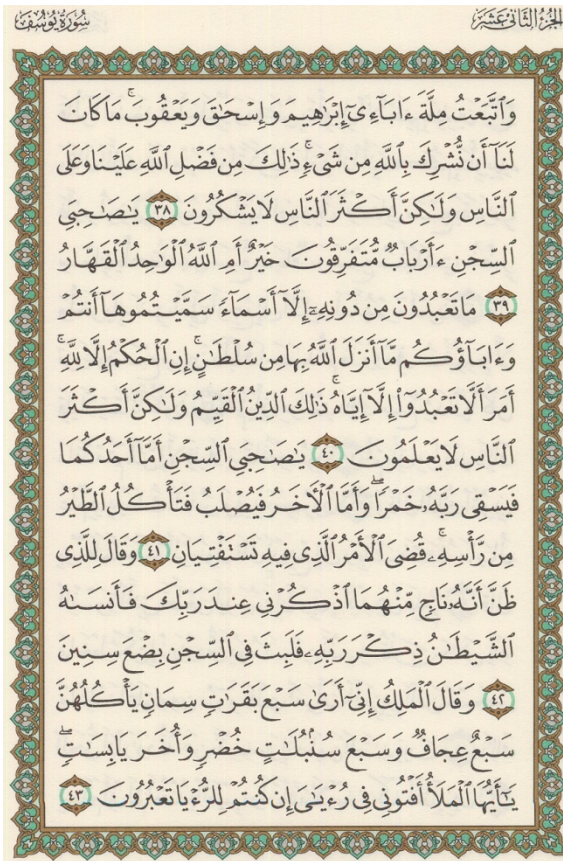 الجزء الثاني عشر
سورة يوسف
وَٱتَّبَعۡتُ مِلَّةَ ءَابَآءِيٓ إِبۡرَٰهِيمَ وَإِسۡحَٰقَ وَيَعۡقُوبَۚ مَا كَانَ
لَنَآ أَن نُّشۡرِكَ بِٱللَّهِ مِن شَيۡءٖۚ ذَٰلِكَ مِن فَضۡلِ ٱللَّهِ عَلَيۡنَا وَعَلَى
ٱلنَّاسِ وَلَٰكِنَّ أَكۡثَرَ ٱلنَّاسِ لَا يَشۡكُرُونَ ٣٨ يَٰصَٰحِبَيِ
ٱلسِّجۡنِ ءَأَرۡبَابٞ مُّتَفَرِّقُونَ خَيۡرٌ أَمِ ٱللَّهُ ٱلۡوَٰحِدُ ٱلۡقَهَّارُ
٣٩ مَا تَعۡبُدُونَ مِن دُونِهِۦٓ إِلَّآ أَسۡمَآءٗ سَمَّيۡتُمُوهَآ أَنتُمۡ
وَءَابَآؤُكُم مَّآ أَنزَلَ ٱللَّهُ بِهَا مِن سُلۡطَٰنٍۚ إِنِ ٱلۡحُكۡمُ إِلَّا لِلَّهِۚ
أَمَرَ أَلَّا تَعۡبُدُوٓاْ إِلَّآ إِيَّاهُۚ ذَٰلِكَ ٱلدِّينُ ٱلۡقَيِّمُ وَلَٰكِنَّ أَكۡثَرَ
ٱلنَّاسِ لَا يَعۡلَمُونَ ٤٠ يَٰصَٰحِبَيِ ٱلسِّجۡنِ أَمَّآ أَحَدُكُمَا
فَيَسۡقِي رَبَّهُۥ خَمۡرٗاۖ وَأَمَّا ٱلۡأٓخَرُ فَيُصۡلَبُ فَتَأۡكُلُ ٱلطَّيۡرُ
مِن رَّأۡسِهِۦۚ قُضِيَ ٱلۡأَمۡرُ ٱلَّذِي فِيهِ تَسۡتَفۡتِيَانِ ٤١ وَقَالَ لِلَّذِي
ظَنَّ أَنَّهُۥ نَاجٖ مِّنۡهُمَا ٱذۡكُرۡنِي عِندَ رَبِّكَ فَأَنسَىٰهُ
ٱلشَّيۡطَٰنُ ذِكۡرَ رَبِّهِۦ فَلَبِثَ فِي ٱلسِّجۡنِ بِضۡعَ سِنِينَ
٤٢ وَقَالَ ٱلۡمَلِكُ إِنِّيٓ أَرَىٰ سَبۡعَ بَقَرَٰتٖ سِمَانٖ يَأۡكُلُهُنَّ
سَبۡعٌ عِجَافٞ وَسَبۡعَ سُنۢبُلَٰتٍ خُضۡرٖ وَأُخَرَ يَابِسَٰتٖۖ
يَٰٓأَيُّهَا ٱلۡمَلَأُ أَفۡتُونِي فِي رُءۡيَٰيَ إِن كُنتُمۡ لِلرُّءۡيَا تَعۡبُرُونَ ٤٣